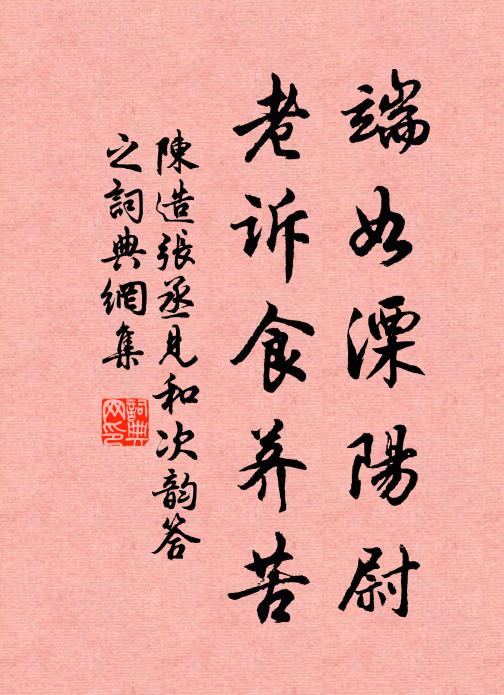 端如溧陽尉
老诉食荠苦
陳造張丞見和次韵答
之詞典網集
詞典
网印